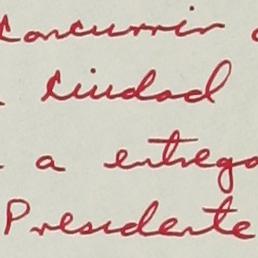 Concurrir
Ciudad
a entrega
Presidente